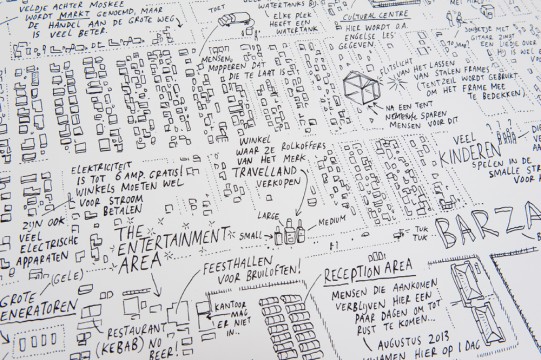 VELDJE ACHTER MOSKEE
WORDT MARKT GENOEMD, MAAR
DE HANDEL AAN DE GROTE WEG
IS VEEL BETER.
TOET
MENSEN
MOPPEREN DAT
DIE TE LAAT IS
WATERTANKS BIJ
ELKE PLEK
HEEFT EEN
WATERTANK
CULTURAL CENTRE
HIER WORDT O.A.
ENGELSE LES
GEGEVEN
FLITSLICHT
VAN HET LASSEN
VAN STALEN FRAMES
(TENTZEIL WORDT GEBRUIKT
OM HET FRAME MEE
TE BEDEKKEN)
NA EEN TENT
SPAREN
MENSEN VOOR DIT
GITAAR ZINGT
EEN LIEDJE OVER
VEEL
KINDEREN
SPELEN IN DE
SMALLE
WINKEL
WAAR ZE ROLKOFFERS
VAN HET MERK
TRAVELLAND
VERKOPEN
LARGE
MEDIUM
SMALL
TUK
TUK
BARZA
ELEKTRICITEIT
IS TOT 6 AMP. GRATIS
WINKELS MOETEN WEL
VOOR STROOM
BETALEN
ZIJN OOK
VEEL
ELEKTRISCHE
APPARATEN
THE
ENTERTAINMENT
AREA
FEESTHALLEN
VOOR BRUILOFTEN!
(GELE)
GROTE
GENERATOREN
RESTAURANT
(KEBAB) NO
BEER!
KANTOOR
MAG
ER NIET
IN..
RECEPTION AREA
MENSEN DIE AANKOMEN
VERBLIJVEN HIER EEN
PAAR DAGEN OM TOT
RUST TE KOMEN...
AUGUSTUS 2013
KWAMEN HIER OP 1 DAG